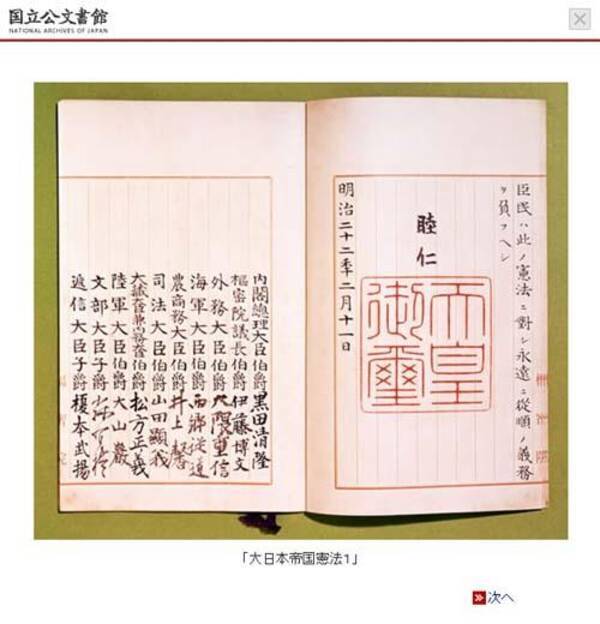 国立公文書館
NATIONAL ARCHIVES OF JAPAN
臣民ハ此ノ憲法ニ對シ永遠ニ從順ノ義務
ヲ負フヘシ
睦仁
天皇
御璽
明治二十二年二月十一日
内閣總理大臣伯爵黒田清隆
樞密院議長伯爵伊藤博文
外務大臣伯爵大隈重信
海軍大臣伯爵西郷從道
農商務大臣伯爵井上馨
司法大臣伯爵山田顯義
大藏大臣兼内務大臣伯爵松方正義
陸軍大臣伯爵大山巖
文部大臣子爵
遞信大臣子爵榎本武揚
「大日本帝国憲法1」
次へ